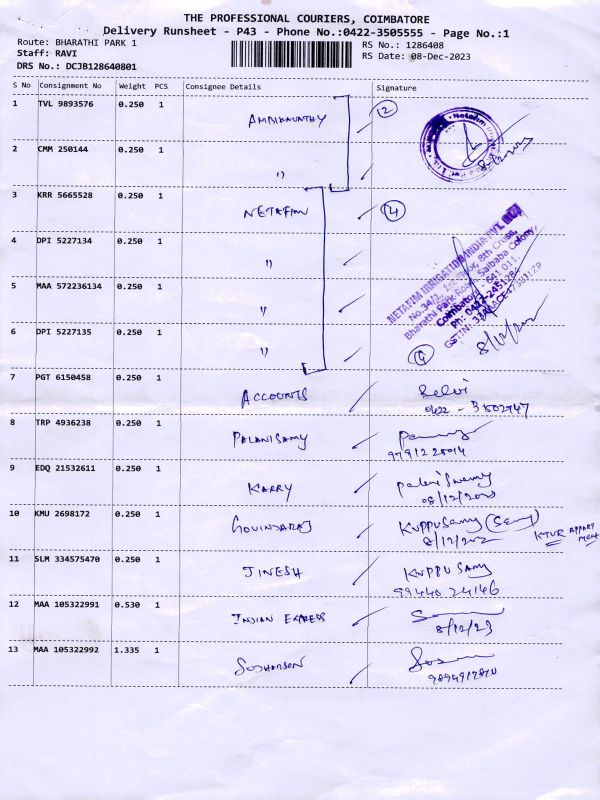 THE PROFESSIONAL COURIERS, COIMBATORE
Delivery Runsheet - P43 - Phone No.:0422-3505555 - Page No.:1
Route: BHARATHI PARK 1
RS No.: 1286408
Staff: RAVI
RS Date: 08-Dec-2023
DRS No.: DCJB128640801
S No Consignment No Weight PCS Consignee Details Signature
1 TVL 9893576 0.250 1 12
2 CMM 250144 0.250 1 "
3 KRR 5665528 0.250 1 NETAFIM 14
4 DPI 5227134 0.250 1 "
5 MAA 572236134 0.250 1 "
6 DPI 5227135 0.250 1 "
NETAFIM IRRIGATION INDIA PVT. LTD.
No.34/2, 1st Floor, 8th Cross,
Bharathi Park Road, Saibaba Colony,
Coimbatore - 641 011.
Ph: 0422-2451284
7 PGT 6150458 0.250 1 ACCOUNTS Selvi
8 TRP 4936238 0.250 1 PALANISAMY
9 EDQ 21532611 0.250 1 KARRY
10 KMU 2698172 0.250 1 GOVINDARAJ KUPPUSamy
KTVR APPART
MENT
11 SLM 334575470 0.250 1 JINESH KUPPUSAMY
99440 24146
12 MAA 105322991 0.530 1 INDIAN EXPRESS
8/12/23
13 MAA 105322992 1.335 1 SUDHARSON